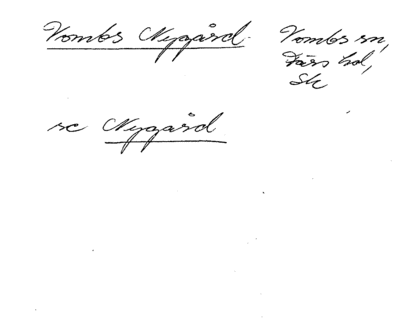 Vombs Nygård. Vombs sn,
Färs hd,
Sk
se Nygård